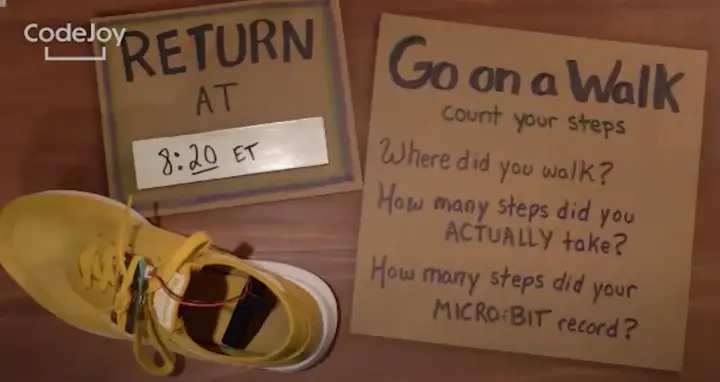 CodeJoy
RETURN
AT
8:20 ET
Go on a Walk
count your steps
Where did you walk?
How many steps did you
ACTUALLY take?
How many steps did your
MICRO:BIT record?